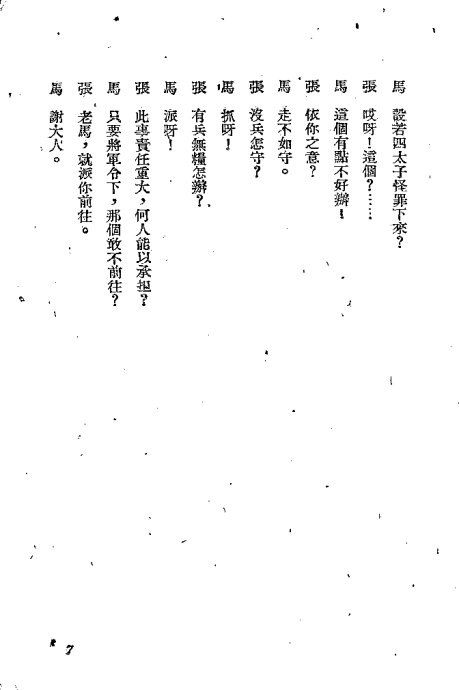 馬　設若四太子怪罪下來？
張　哎呀！這個？……
馬　這個有點不好辦！
張　依你之意？
馬　走不如守。
張　沒兵怎守？
馬　抓呀！
張　有兵無糧怎辦？
馬　派呀！
張　此事責任重大，何人能以承担？
馬　只要將軍令下，那個敢不前往？
張　老馬，就派你前往。
馬　謝大人。
7